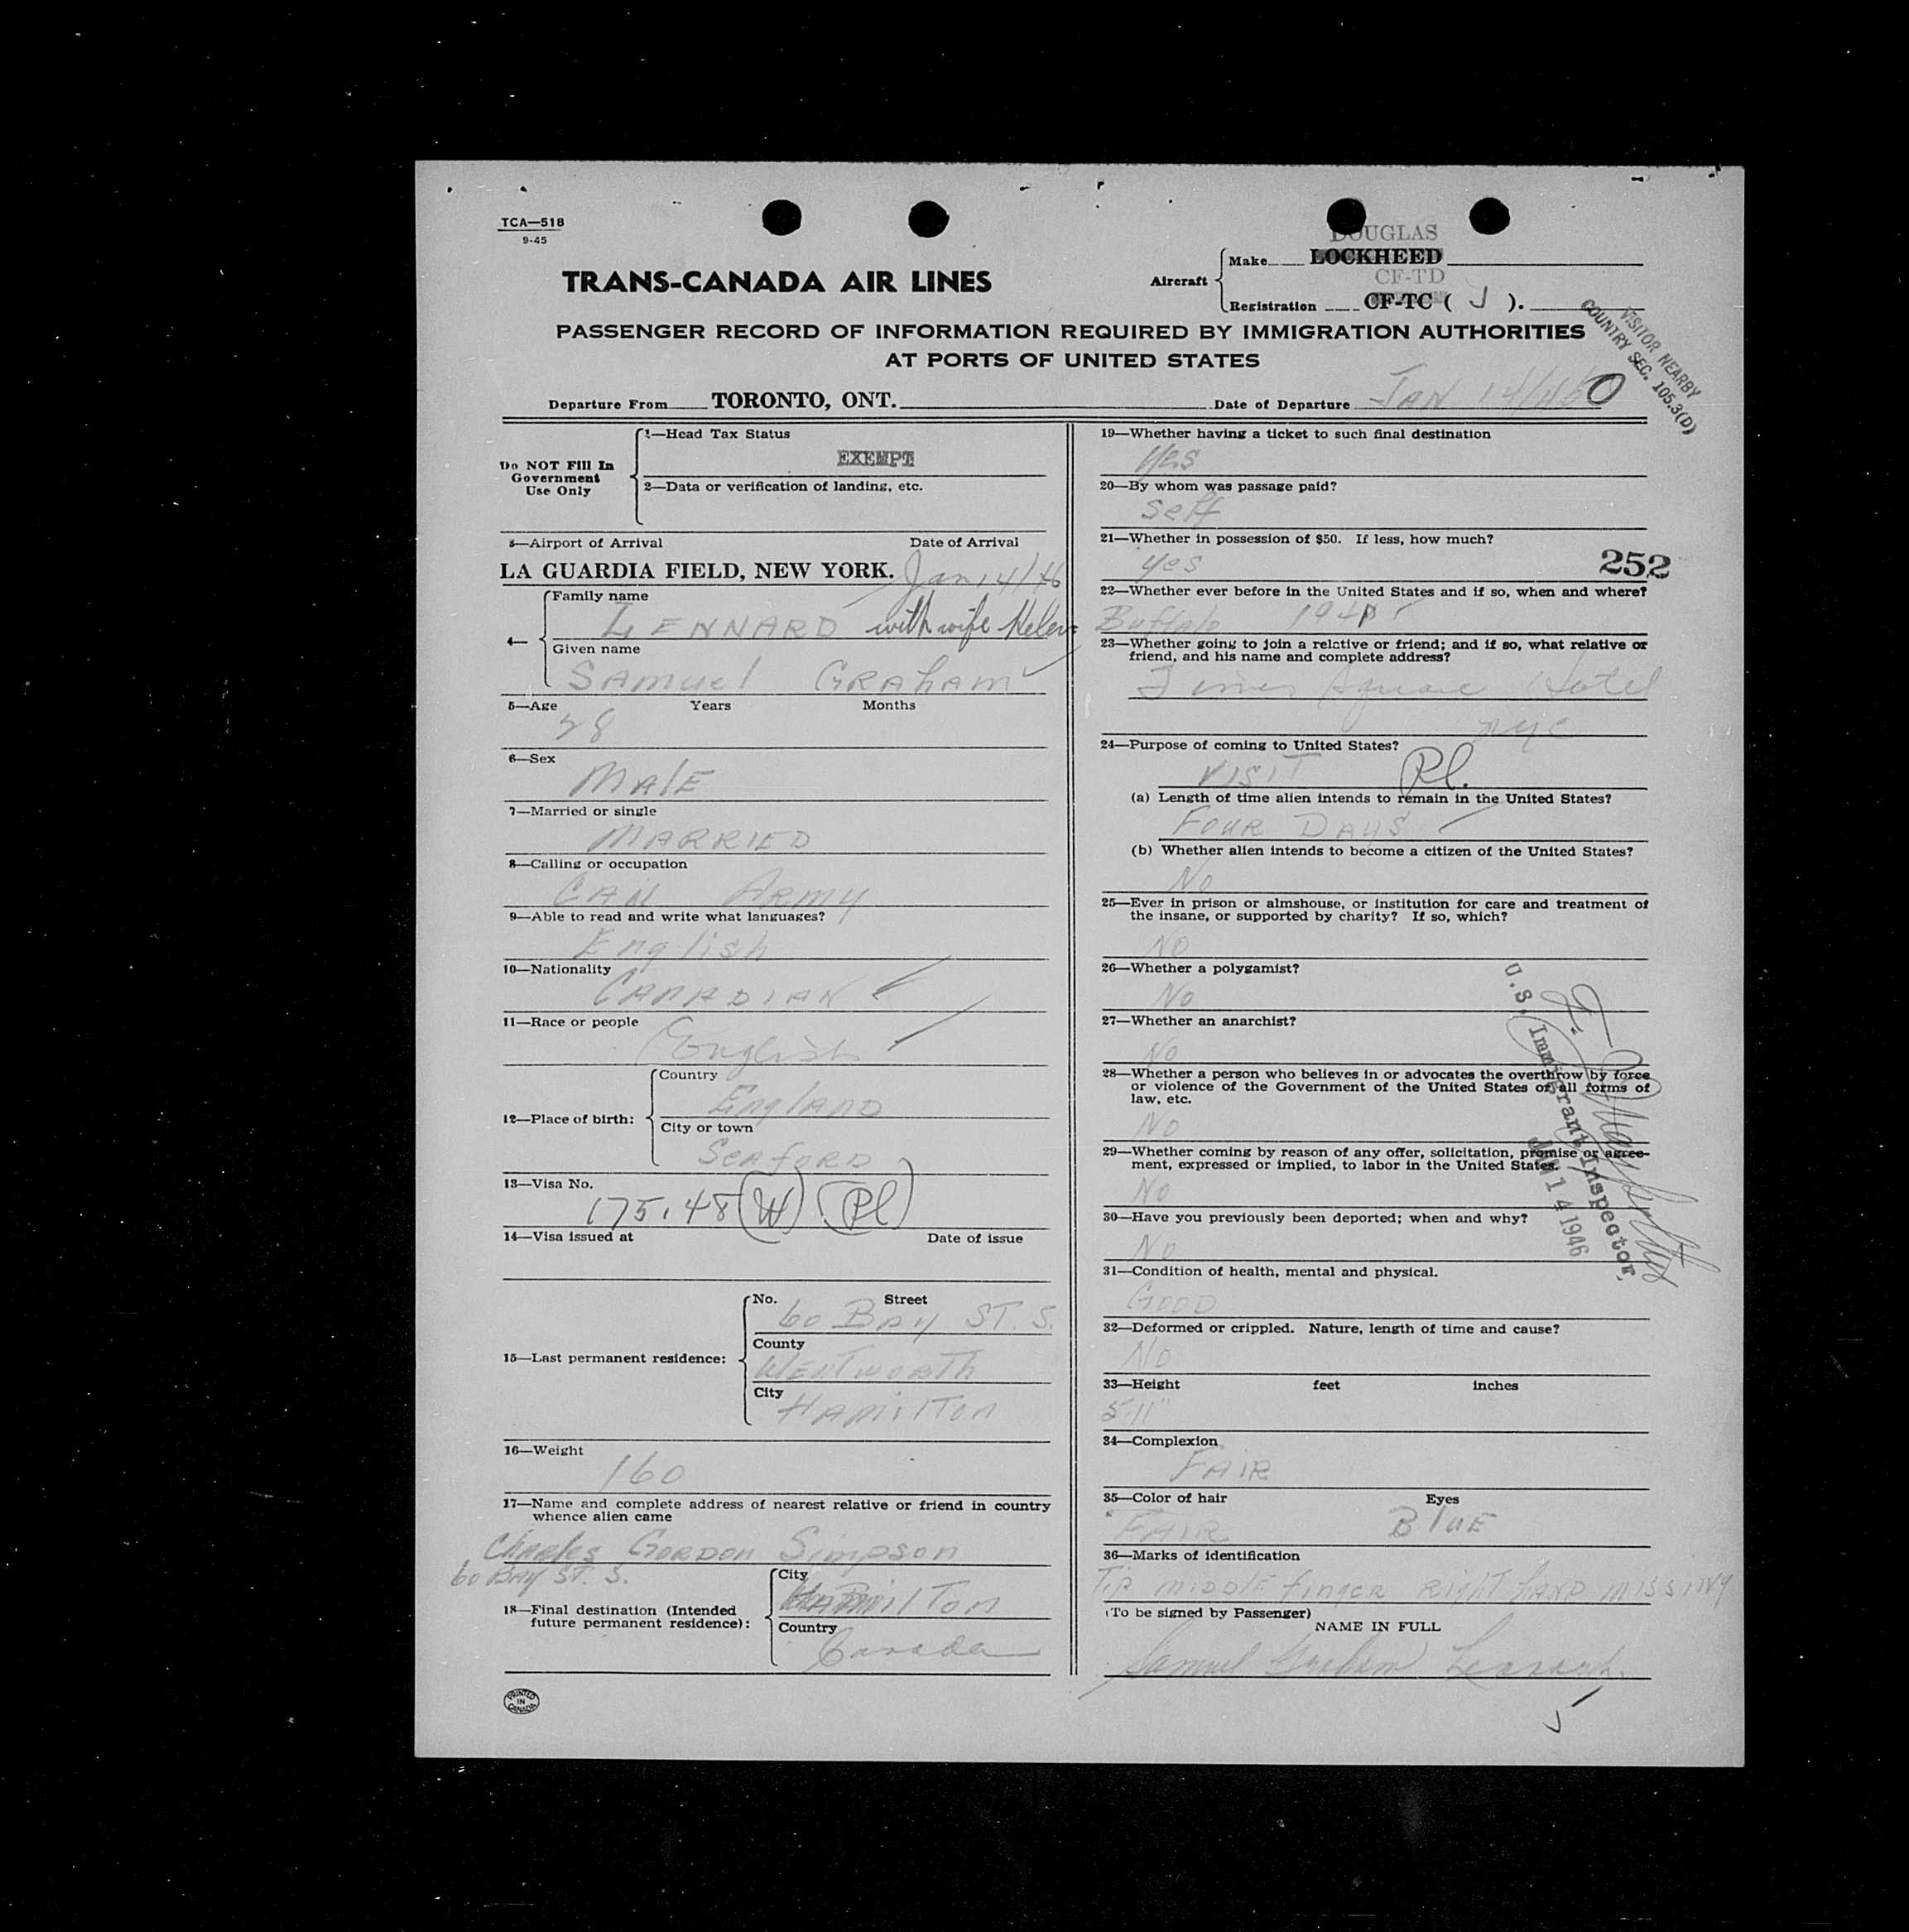 TCA—518
9-45
TRANS-CANADA AIR LINES
DOUGLAS
Aircraft
Make LOCKHEED
CF-TD
Registration CF-TC ( J ).
PASSENGER RECORD OF INFORMATION REQUIRED BY IMMIGRATION AUTHORITIES
AT PORTS OF UNITED STATES
VISITOR NEARBY
COUNTRY SEC. 105.3(D)
Departure From TORONTO, ONT. Date of Departure JAN 14/46 0
Do NOT Fill In
Government
Use Only
1—Head Tax Status
EXEMPT
2—Data or verification of landing, etc.
3—Airport of Arrival Date of Arrival
LA GUARDIA FIELD, NEW YORK. Jan 14/46
4—
Family name
LENNARD with wife Helen
Given name
SAMUEl GRAhAM
5—Age Years Months
28
6—Sex
MAlE
7—Married or single
MARRIED
8—Calling or occupation
CAN ARMY
9—Able to read and write what languages?
English
10—Nationality
CANADIAN
11—Race or people
English
12—Place of birth:
Country
EnglAND
City or town
SEAFORD
13—Visa No.
175.48 (W) (Pl)
14—Visa issued at Date of issue
15—Last permanent residence:
No. Street
60 BAY ST. S.
County
WENTWORTh
City
HAMilTON
16—Weight
160
17—Name and complete address of nearest relative or friend in country
whence alien came
ChARles GORDON Simpson
60 BAY ST. S.
18—Final destination (Intended
future permanent residence):
City
HAMilTON
Country
Canada
PRINTED
IN
CANADA
19—Whether having a ticket to such final destination
yes
20—By whom was passage paid?
self
21—Whether in possession of $50. If less, how much?
yes
252
22—Whether ever before in the United States and if so, when and where?
Buffalo
23—Whether going to join a relative or friend; and if so, what relative or
friend, and his name and complete address?
Times Square Hotel
nyc
24—Purpose of coming to United States?
VISIT Pl.
(a) Length of time alien intends to remain in the United States?
FOUR DAYS
(b) Whether alien intends to become a citizen of the United States?
No
25—Ever in prison or almshouse, or institution for care and treatment of
the insane, or supported by charity? If so, which?
NO
26—Whether a polygamist?
No
27—Whether an anarchist?
No
28—Whether a person who believes in or advocates the overthrow by force
or violence of the Government of the United States or all forms of
law, etc.
NO
29—Whether coming by reason of any offer, solicitation, promise or agree-
ment, expressed or implied, to labor in the United States.
No
30—Have you previously been deported; when and why?
No
U.S. Immigrant Inspector,
JAN 14 1946
31—Condition of health, mental and physical.
GOOD
32—Deformed or crippled. Nature, length of time and cause?
NO
33—Height feet inches
5'11"
34—Complexion
FAIR
35—Color of hair Eyes
FAIR BluE
36—Marks of identification
Tip MIDDlE fingER RIGhT hAND MISSING
(To be signed by Passenger)
NAME IN FULL
Samuel Graham Lennard.